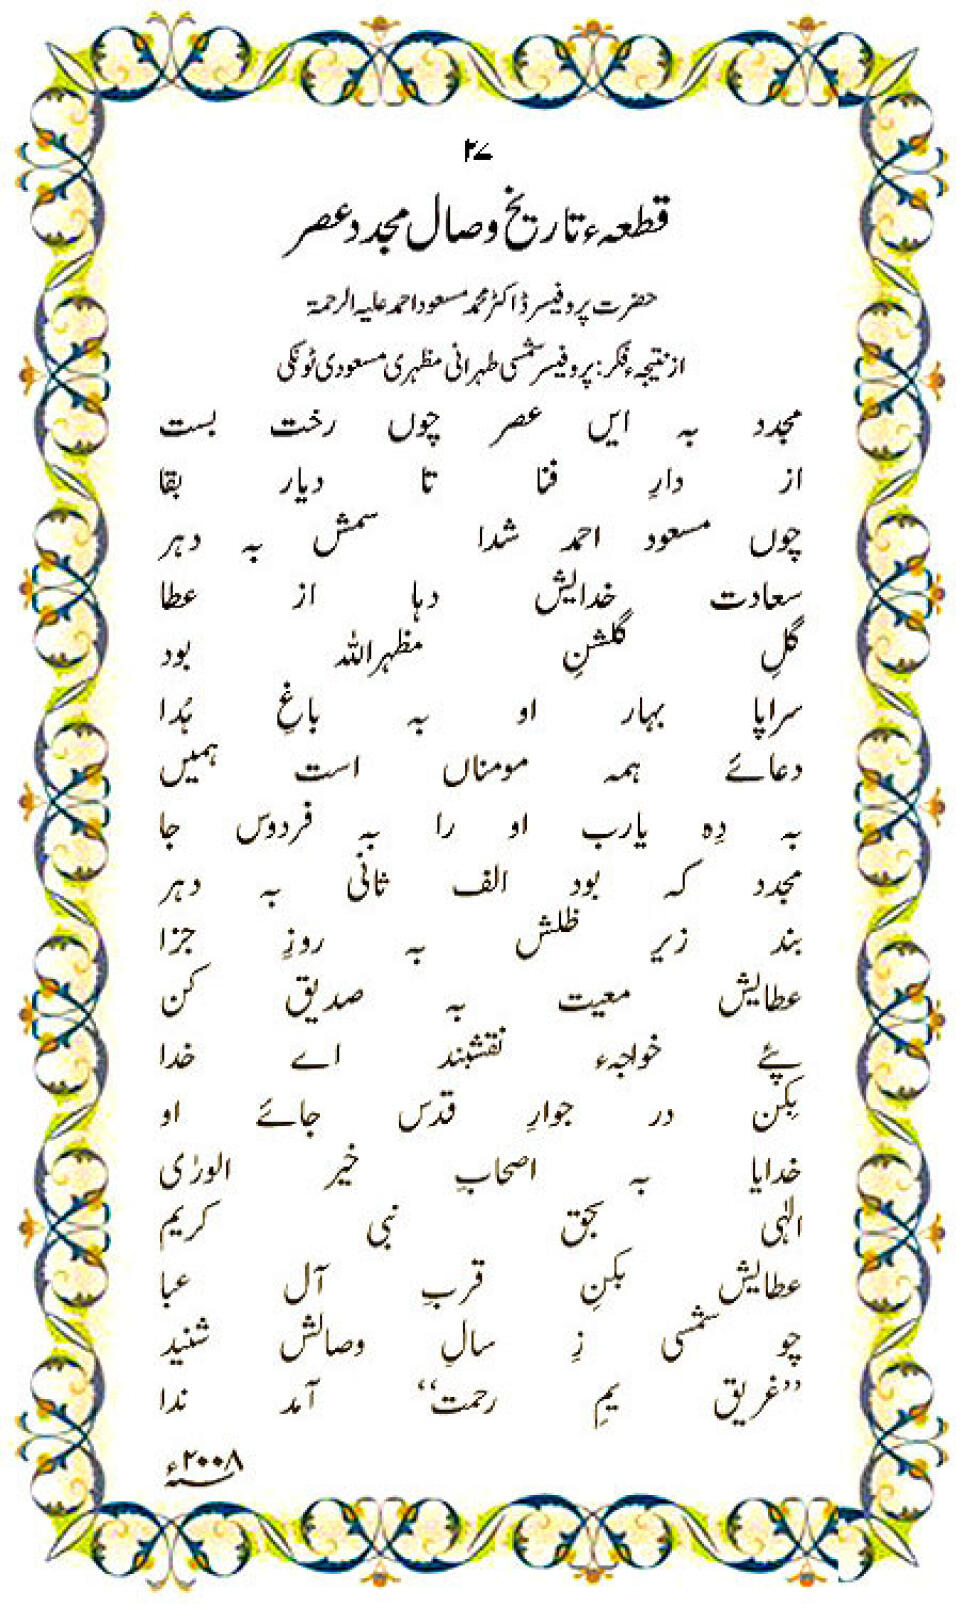 ۲۷
قطعہء تاریخ وصال مجدد عصر
حضرت پروفیسر ڈاکٹر محمد مسعود احمد علیہ الرحمۃ
از نتیجہء فکر: پروفیسر شمسی طہرانی مظہری مسعودی ٹونکی
مجدد بہ ایں عصر چوں رخت بست
از دارِ فنا تا دیار بقا
چوں مسعود احمد شدا سمش بہ دہر
سعادت خدایش دہا از عطا
گلِ گلشنِ مظہراللہ بود
سراپا بہار او بہ باغِ ہُدا
دعائے ہمہ مومناں است ہمیں
بہ دِہ یارب او را بہ فردوس جا
مجدد کہ بود الف ثانی بہ دہر
بند زیر ظلش بہ روزِ جزا
عطایش معیت بہ صدیق کن
پئے خواجہء نقشبند اے خدا
بکن در جوارِ قدس جائے او
خدایا بہ اصحابِ خیر الورٰی
الٰہی بحق نبی کریم
عطایش بکنِ قربِ آل عبا
چو شمسی زِ سالِ وصالش شنید
”غریق یمِ رحمت“ آمد ندا
۲۰۰۸ء